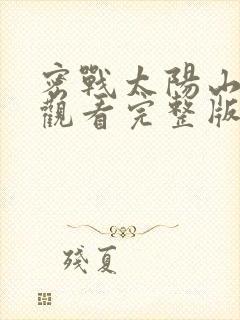 密戰太陽山
觀看完整版
殘夏